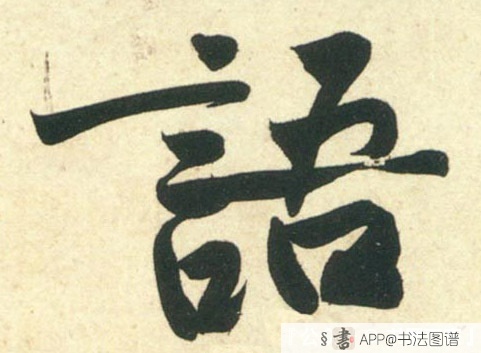 語
§書 APP@书法图谱